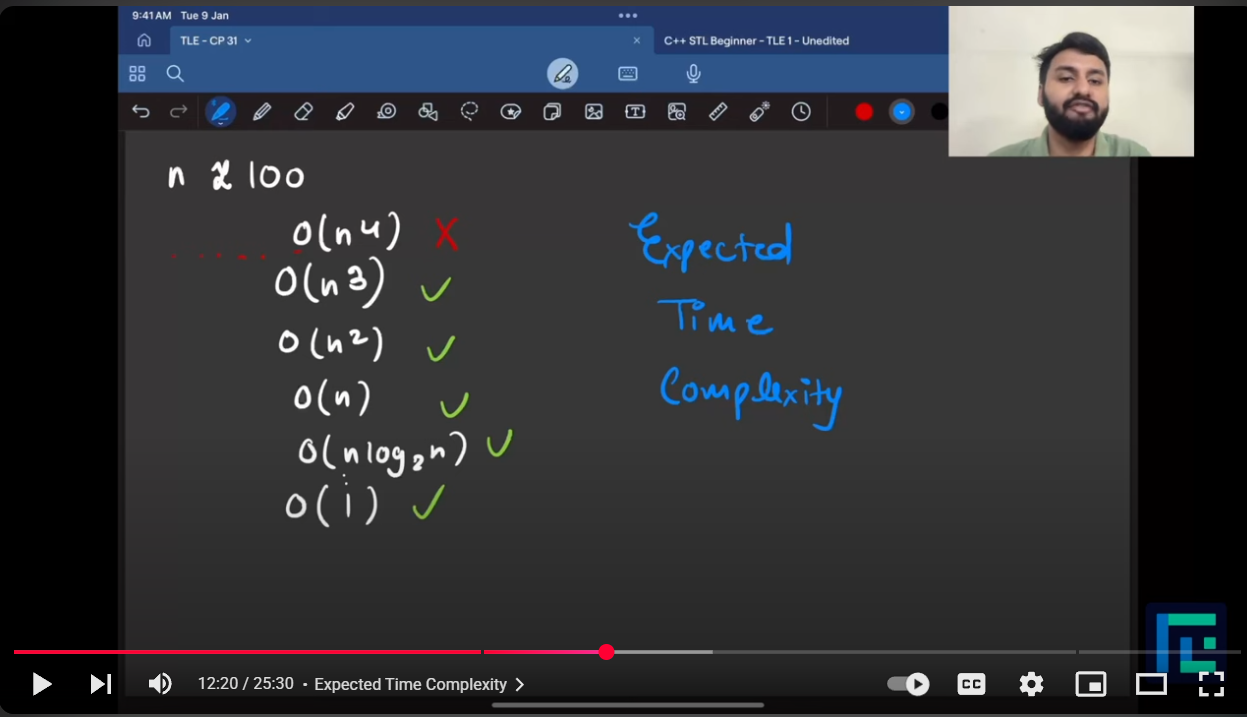 9:41 AM Tue 9 Jan
TLE - CP 31
C++ STL Beginner - TLE 1 - Unedited
n ≈ 100
O(n4) X
O(n3) ✓
O(n2) ✓
O(n) ✓
O(nlog2n) ✓
O(i) ✓
Expected
Time
Complexity
12:20 / 25:30 • Expected Time Complexity >
CC